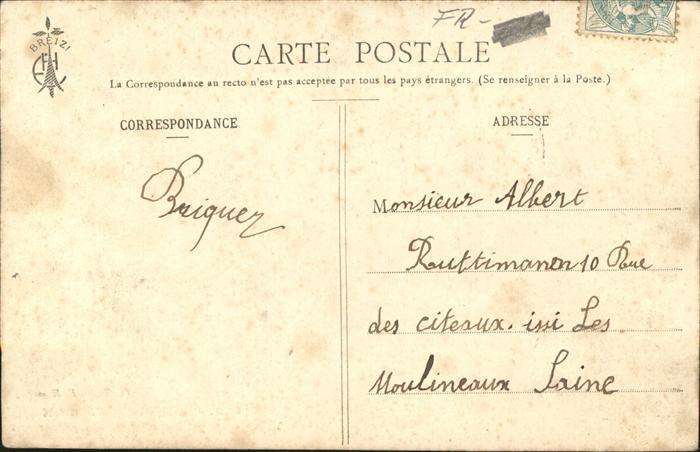 FR-
BREIZ
CARTE POSTALE
La Correspondance au recto n'est pas acceptée par tous les pays étrangers. (Se renseigner à la Poste.)
CORRESPONDANCE
ADRESSE
Briquez
Monsieur Albert
Ruttimanon 10 Rue
des citeaux. issi Les
Moulineaux Saine